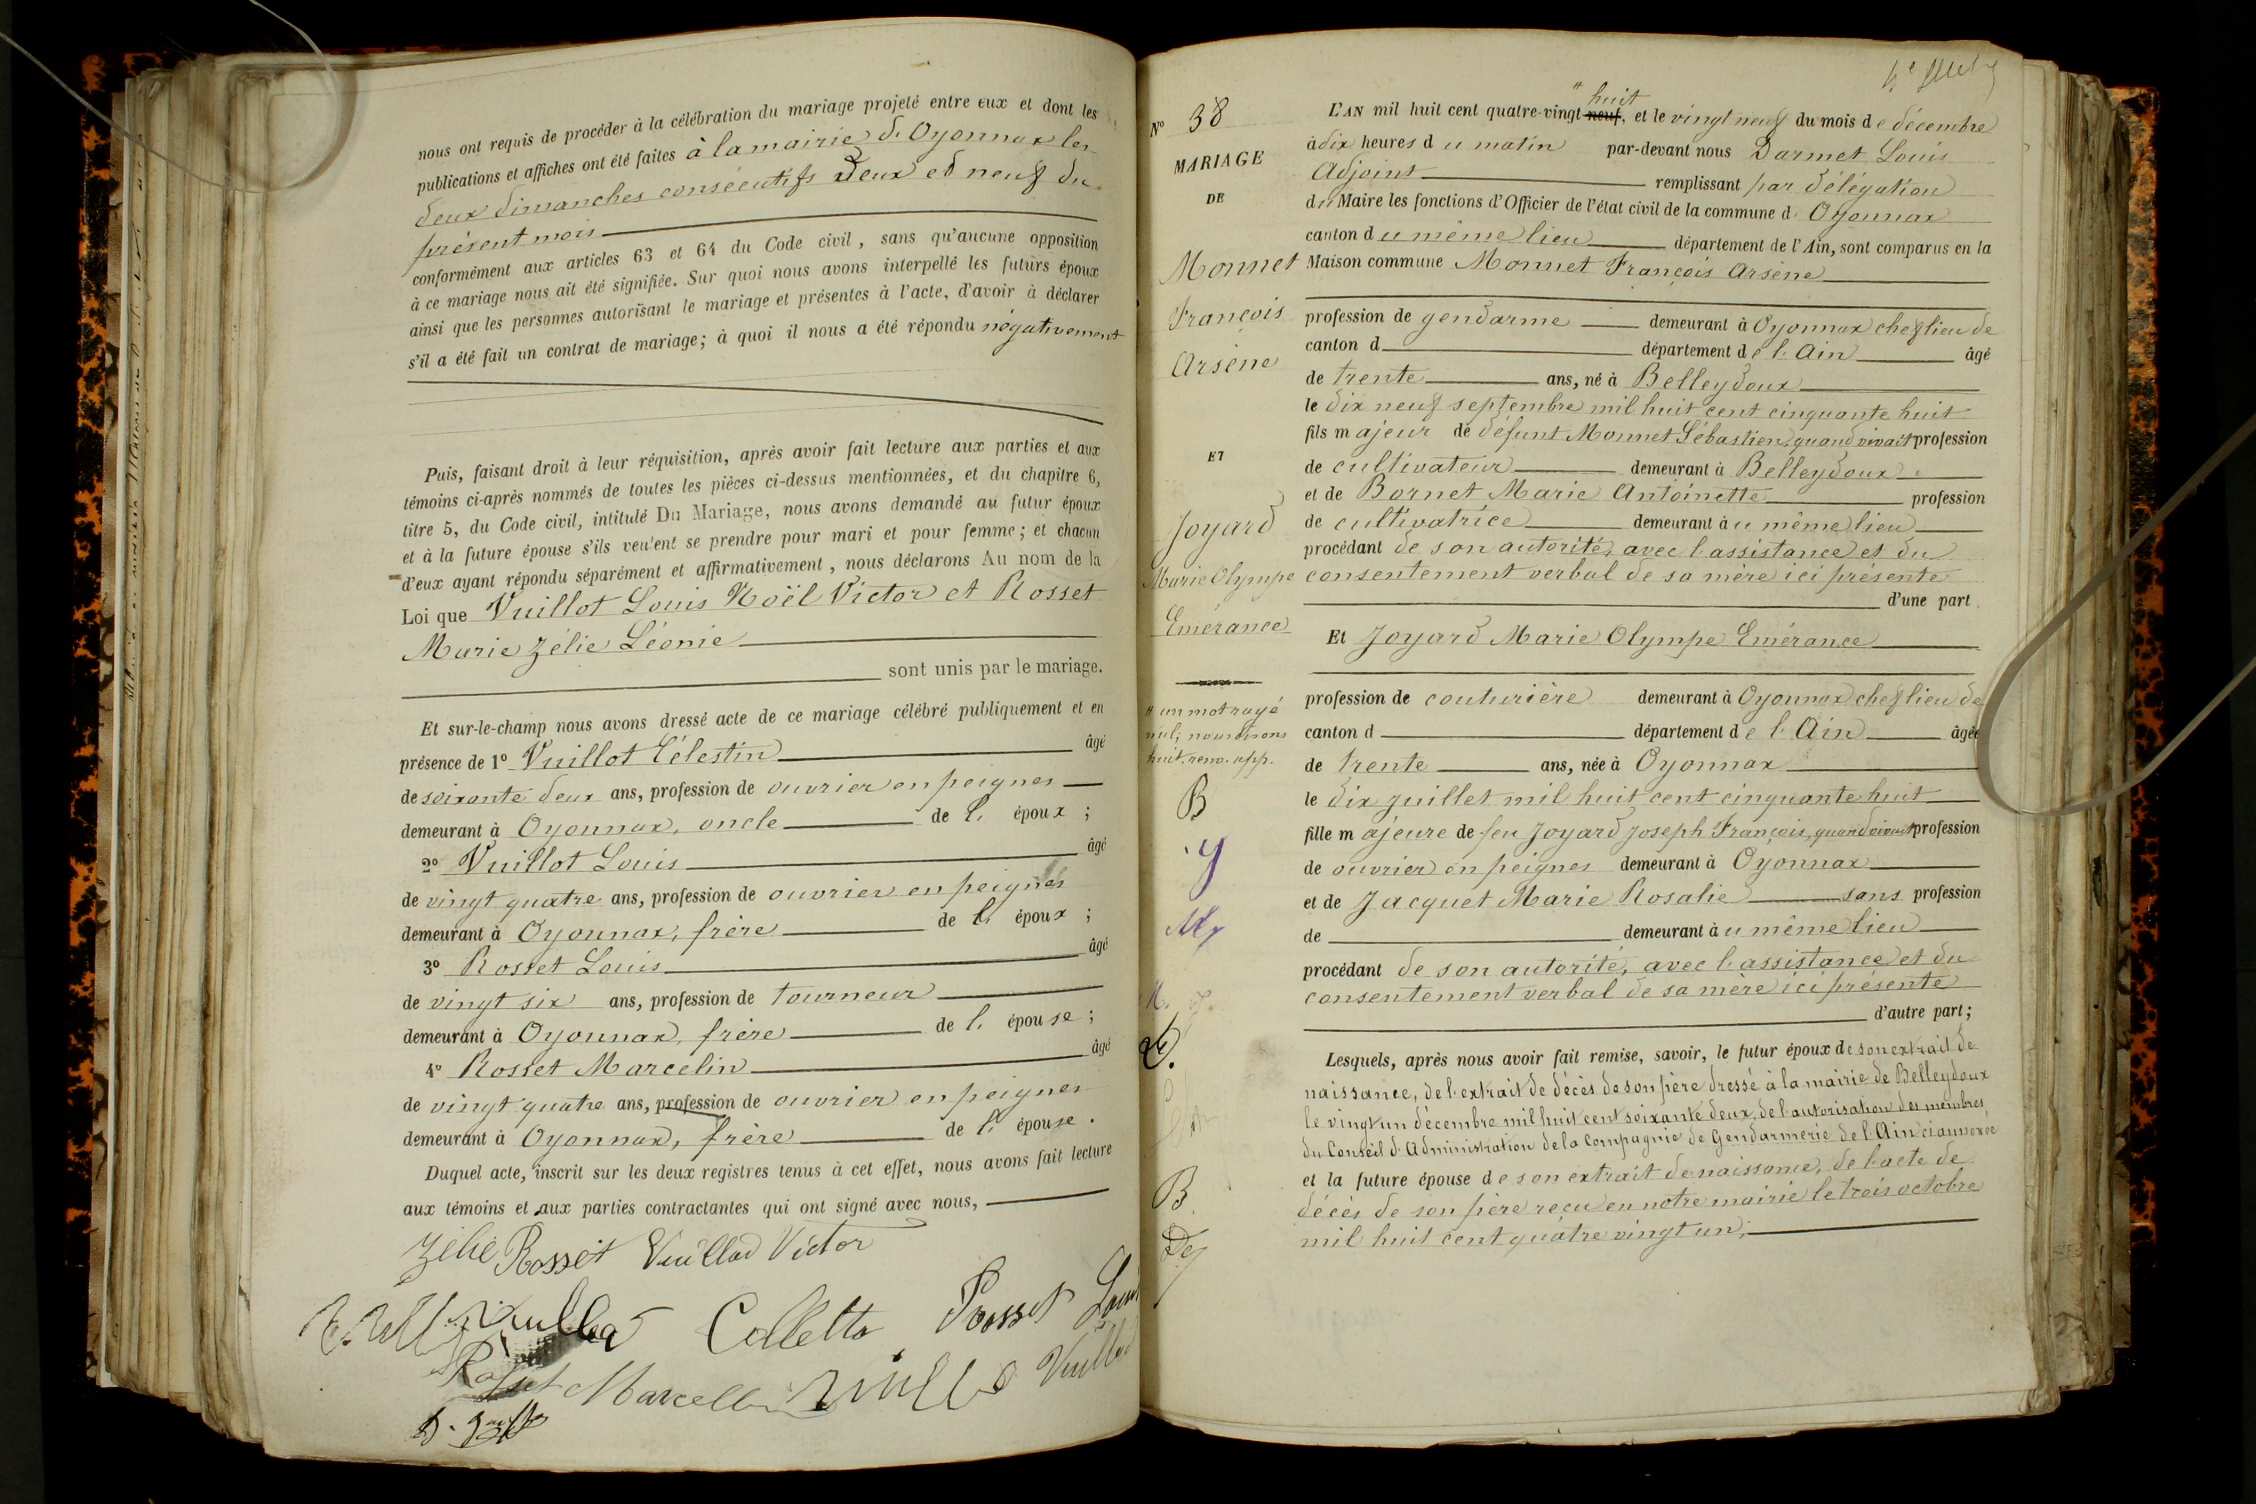 nous ont requis de procéder à la célébration du mariage projeté entre eux et dont les
publications et affiches ont été faites à la mairie d'Oyonnax les
deux dimanches consécutifs deux et neuf du
présent mois
conformément aux articles 63 et 64 du Code civil, sans qu'aucune opposition
à ce mariage nous ait été signifiée. Sur quoi nous avons interpellé les futurs époux
ainsi que les personnes autorisant le mariage et présentes à l'acte, d'avoir à déclarer
s'il a été fait un contrat de mariage; à quoi il nous a été répondu négativement
Puis, faisant droit à leur réquisition, après avoir fait lecture aux parties et aux
témoins ci-après nommés de toutes les pièces ci-dessus mentionnées, et du chapitre 6,
titre 5, du Code civil, intitulé Du Mariage, nous avons demandé au futur époux
et à la future épouse s'ils veulent se prendre pour mari et pour femme; et chacun
d'eux ayant répondu séparément et affirmativement, nous déclarons Au nom de la
Loi que Vuillot Louis Noël Victor et Rosset
Marie Zélie Léonie
sont unis par le mariage.
Et sur-le-champ nous avons dressé acte de ce mariage célébré publiquement et en
présence de 1° Vuillot Célestin âgé
de soixante deux ans, profession de ouvrier en peignes
demeurant à Oyonnax, oncle de l' époux ;
2° Vuillot Louis âgé
de vingt quatre ans, profession de ouvrier en peignes
demeurant à Oyonnax, frère de l' époux ;
3° Rosset Louis âgé
de vingt six ans, profession de tourneur
demeurant à Oyonnax, frère de l' épouse ;
4° Rosset Marcelin âgé
de vingt quatre ans, profession de ouvrier en peignes
demeurant à Oyonnax, frère de l' épouse .
Duquel acte, inscrit sur les deux registres tenus à cet effet, nous avons fait lecture
aux témoins et aux parties contractantes qui ont signé avec nous,
Zélie Rosset Vuillod Victor
Colletta Rosset Louis
Rosset Marcellin
N° 38
MARIAGE
DE
Monnet
François
Arsène
ET
Joyard
Marie Olympe
Emérance
# un mot rayé
nul; nous disons
huit. renv. app.
B
L'AN mil huit cent quatre-vingt neuf, # huit et le vingt neuf du mois de décembre
à dix heures du matin par-devant nous Darmet Louis
Adjoint remplissant par délégation
du Maire les fonctions d'Officier de l'état civil de la commune d' Oyonnax
canton du même lieu département de l'Ain, sont comparus en la
Maison commune Monnet François Arsène
profession de gendarme demeurant à Oyonnax chef lieu de
canton d département de l'Ain âgé
de trente ans, né à Belleydoux
le dix neuf septembre mil huit cent cinquante huit
fils majeur de défunt Monnet Sébastien, quand vivait profession
de cultivateur demeurant à Belleydoux
et de Bornet Marie Antoinette profession
de cultivatrice demeurant au même lieu
procédant de son autorité, avec l'assistance et du
consentement verbal de sa mère ici présente
d'une part.
Et Joyard Marie Olympe Emérance
profession de couturière demeurant à Oyonnax chef lieu de
canton d département de l'Ain âgée
de trente ans, née à Oyonnax
le dix juillet mil huit cent cinquante huit
fille majeure de feu Joyard Joseph François, quand vivait profession
de ouvrier en peignes demeurant à Oyonnax
et de Jacquet Marie Rosalie sans profession
de demeurant au même lieu
procédant de son autorité, avec l'assistance et du
consentement verbal de sa mère ici présente
d'autre part;
Lesquels, après nous avoir fait remise, savoir, le futur époux de son extrait de
naissance, de l'extrait de décès de son père dressé à la mairie de Belleydoux
le vingt un décembre mil huit cent soixante deux, de l'autorisation des membres
du Conseil d'Administration de la Compagnie de Gendarmerie de l'Ain ci annexée
et la future épouse de son extrait de naissance, de l'acte de
décès de son père reçu en notre mairie le trois octobre
mil huit cent quatre vingt un,